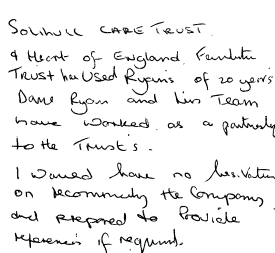 SOLIHULL CARE TRUST.
& Heart of England Foundation
TRUST has Used Ryan's of 20 years
Dave Ryan and his Team
have worked as a partnership
to the Trust's.
I would have no hesitation
on recommending the Company
and prepared to Provide
references if required.